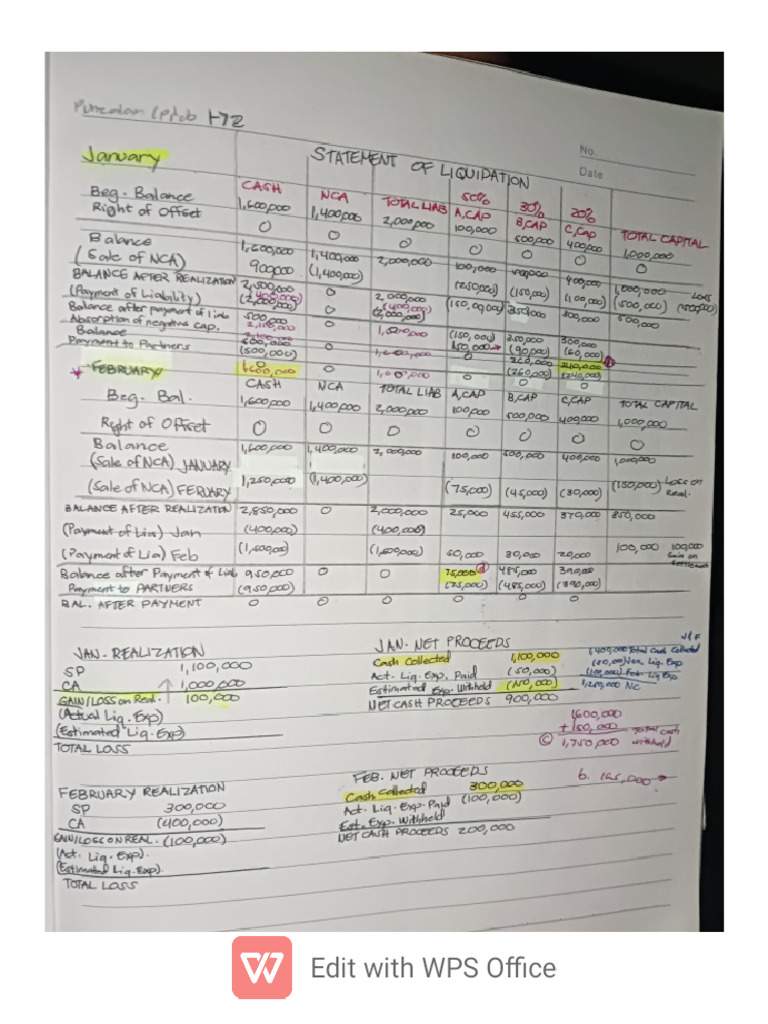 1-72
No.
Date
January
STATEMENT OF LIQUIDATION
CASH NCA TOTAL LIAB 50% A, CAP 30% B, CAP 20% C, CAP TOTAL CAPITAL
Beg. Balance 1,600,000 1,400,000 2,000,000 100,000 500,000 400,000 1,000,000
Right of Offset 0 0 0 0 0 0 0
Balance 1,600,000 1,400,000 2,000,000 100,000 500,000 400,000 1,000,000
(Sale of NCA) 900,000 (1,400,000) (250,000) (150,000) (100,000) (500,000) Loss
BALANCE AFTER REALIZATION 2,500,000 0 2,000,000 (150,000) 350,000 300,000 500,000
(Payment of Liability) (2,000,000) (400,000) (2,000,000) (400,000)
Balance after payment of liab 500,000 2,100,000 0 1,600,000 (150,000) 350,000 300,000
Absorption of negative cap. 150,000 (90,000) (60,000)
Balance 500,000 260,000 240,000
Payment to Partners (500,000) 0 (260,000) (240,000)
FEBRUARY 1,600,000 0 1,600,000 0 0 0
CASH NCA TOTAL LIAB A, CAP B, CAP C, CAP TOTAL CAPITAL
Beg. Bal. 1,600,000 1,400,000 2,000,000 100,000 500,000 400,000 1,000,000
Right of Offset 0 0 0 0 0 0 0
Balance 1,600,000 1,400,000 2,000,000 100,000 500,000 400,000 1,000,000
(Sale of NCA) JANUARY
(Sale of NCA) FERUARY 1,250,000 (1,400,000) (75,000) (45,000) (30,000) (150,000) Loss on Real.
BALANCE AFTER REALIZATION 2,850,000 0 2,000,000 25,000 455,000 370,000 850,000
(Payment of Liab) Jan (400,000) (400,000)
(Payment of Lia) Feb (1,500,000) (1,600,000) 50,000 30,000 20,000 100,000 100,000 Gain on settlement
Balance after Payment of Liab 950,000 0 0 75,000 485,000 390,000
Payment to PARTNERS (950,000) (75,000) (485,000) (390,000)
BAL. AFTER PAYMENT 0 0 0 0 0 0
JAN. REALIZATION
SP 1,100,000
CA 1,000,000
GAIN/LOSS on Real. 100,000
(Actual Liq. Exp)
(Estimated Liq. Exp)
TOTAL LOSS
JAN. NET PROCEEDS
Cash Collected 1,100,000
Act. Liq. Exp. Paid (50,000)
Estimated Exp. Withheld (150,000)
NET CASH PROCEEDS 900,000
J/F
1,400,000 Total Cash Collected
(50,000) Jan. Liq. Exp
(100,000) Feb. Liq Exp
1,250,000 NC
1600,000
+ 150,000 Total cash withheld
Ⓒ 1,750,000
b. 165,000 →
FEBRUARY REALIZATION
SP 300,000
CA (400,000)
GAIN/LOSS ON REAL. (100,000)
(Act. Liq. Exp).
(Estimated Liq. Exp).
TOTAL LOSS
FEB. NET PROCEEDS
Cash Collected 300,000
Act. Liq. Exp. Paid (100,000)
Est. Exp. Withheld
NET CASH PROCEEDS 200,000
Edit with WPS Office